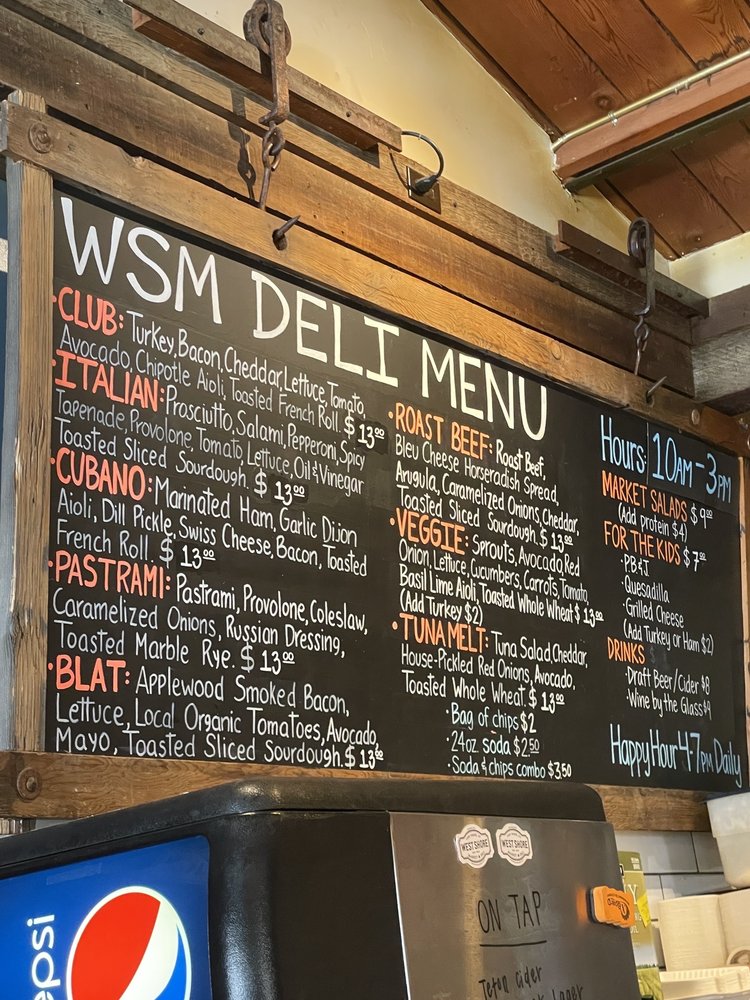 WSM DELI MENU
·CLUB: Turkey, Bacon, Cheddar, Lettuce, Tomato,
Avocado, Chipotle Aioli, Toasted French Roll. $13.00
·ITALIAN: Prosciutto, Salami, Pepperoni, Spicy
Tapenade, Provolone, Tomato, Lettuce, Oil & Vinegar
Toasted Sliced Sourdough. $13.00
·CUBANO: Marinated Ham, Garlic Dijon
Aioli, Dill Pickle, Swiss Cheese, Bacon, Toasted
French Roll. $13.00
·PASTRAMI: Pastrami, Provolone, Coleslaw,
Caramelized Onions, Russian Dressing,
Toasted Marble Rye. $13.00
·BLAT: Applewood Smoked Bacon,
Lettuce, Local Organic Tomatoes, Avocado,
Mayo, Toasted Sliced Sourdough. $13.00
·ROAST BEEF: Roast Beef,
Bleu Cheese Horseradish Spread,
Arugula, Caramelized Onions, Cheddar,
Toasted Sliced Sourdough. $13.00
·VEGGIE: Sprouts, Avocado, Red
Onion, Lettuce, Cucumbers, Carrots, Tomato,
Basil Lime Aioli, Toasted Whole Wheat $13.00
(Add Turkey $2)
·TUNA MELT: Tuna Salad, Cheddar,
House-Pickled Red Onions, Avocado,
Toasted Whole Wheat. $13.00
·Bag of chips $2
·24oz soda $2.50
·Soda & chips combo $3.50
Hours: 10AM-3PM
MARKET SALADS $9.00
(Add protein $4)
FOR THE KIDS $7.00
·PB&J
·Quesadilla
·Grilled Cheese
(Add Turkey or Ham $2)
DRINKS
·Draft Beer/Cider $8
·Wine by the Glass $9
Happy Hour 4-7PM Daily
pepsi
WEST SHORE
WEST SHORE
ON TAP
Teton Cider
Lager